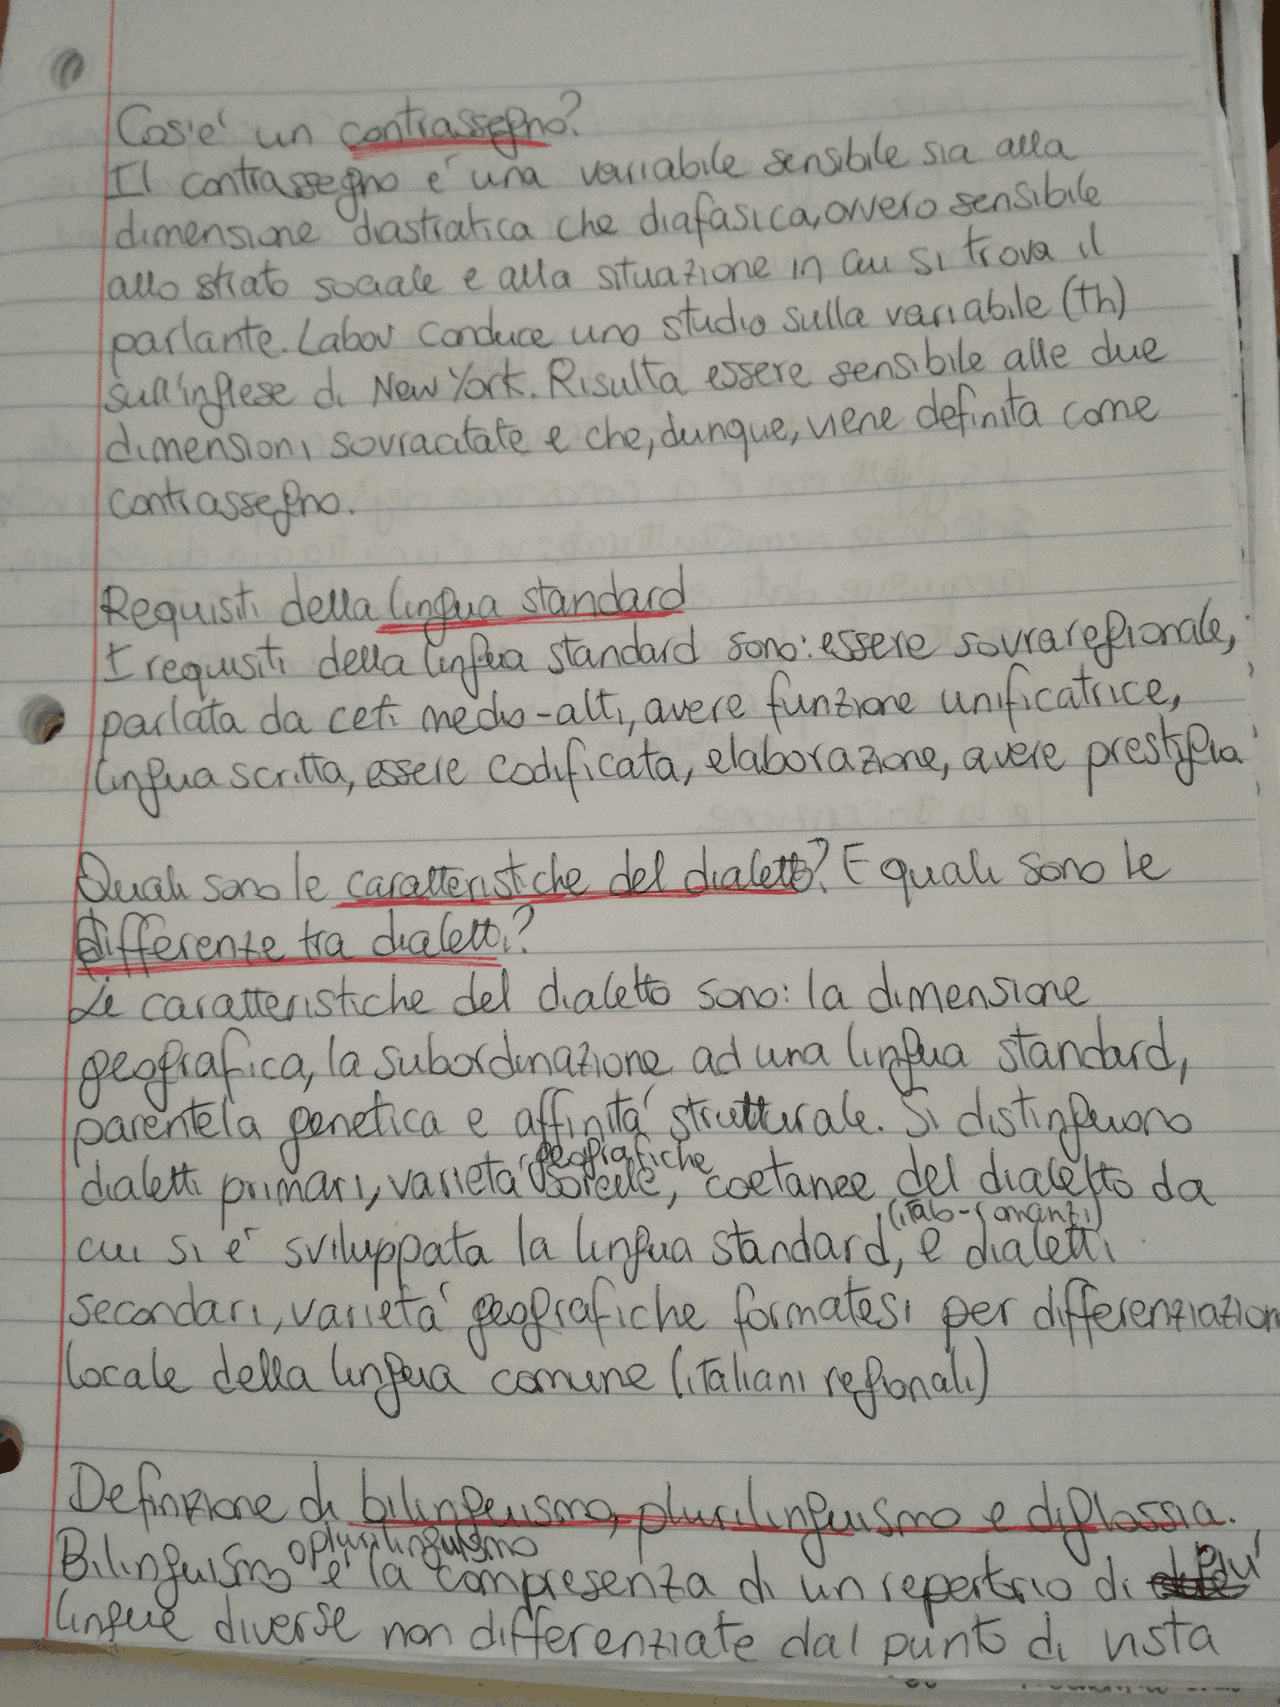 Cos'e' un contrassegno?
Il contrassegno e' una variabile sensibile sia alla
dimensione diastratica che diafasica, ovvero sensibile
allo strato sociale e alla situazione in cui si trova il
parlante. Labov conduce uno studio sulla variabile (th)
sull'inglese di New York. Risulta essere sensibile alle due
dimensioni sovracitate e che, dunque, viene definita come
contrassegno.
Requisiti della lingua standard
I requisiti della lingua standard sono: essere sovraregionale,
parlata da ceti medio-alti, avere funzione unificatrice,
lingua scritta, essere codificata, elaborazione, avere prestigio
Quali sono le caratteristiche del dialetto? E quali sono le
differenze tra dialetti?
Le caratteristiche del dialetto sono: la dimensione
geografica, la subordinazione ad una lingua standard,
parentela genetica e affinita' strutturale. Si distinguono
geografiche
dialetti primari, varieta' sorelle, coetanee del dialetto da
(italo-romanzi)
cui si e' sviluppata la lingua standard, e dialetti
secondari, varieta' geografiche formatesi per differenziazion
locale della lingua comune (italiani regionali)
Definizione di bilinguismo, plurilinguismo e diglossia.
o plurilinguismo
Bilinguismo e' la compresenza di un repertorio di piu'
lingue diverse non differenziate dal punto di vista